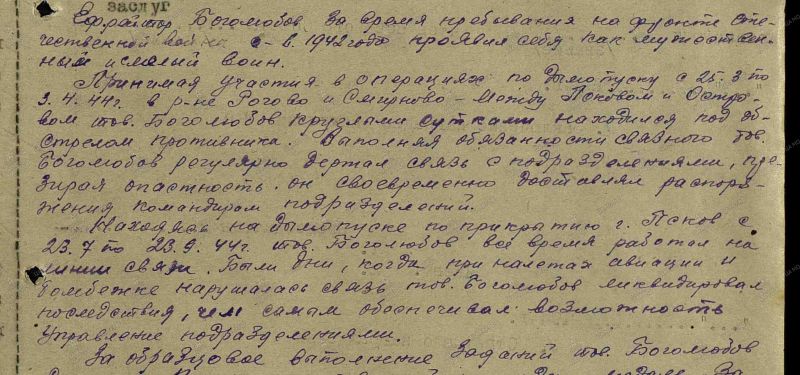 заслуг
Ефрейтор Боголюбов за время пребывания на фронте оте-
чественной войны с в. 1942 года проявил себя как мужествен-
ный и смелый воин.
Принимая участия в операциях по дымопуску с 25.3 по
3.4.44г. в р-не Рогово и Смирново - между Псковом и Остро-
вом тов. Боголюбов круглыми сутками находился под об-
стрелом противника. Выполняя обязанности связного тов.
Боголюбов регулярно держал связь с подразделениями, пре-
зирая опастность. он своевременно доставлял распоря-
жения командирам подразделений.
Находясь на дымопуске по прикрытию г. Псков с
23.7 по 23.9.44г. тов. Боголюбов всё время работал на
линии связи. Были дни, когда при налетах авиации и
бомбежке нарушалась связь тов. Боголюбов ликвидировал
последствия, чем самым обеспечивал возможность
управление подразделениями.
За образцовое выполнение заданий тов. Боголюбов